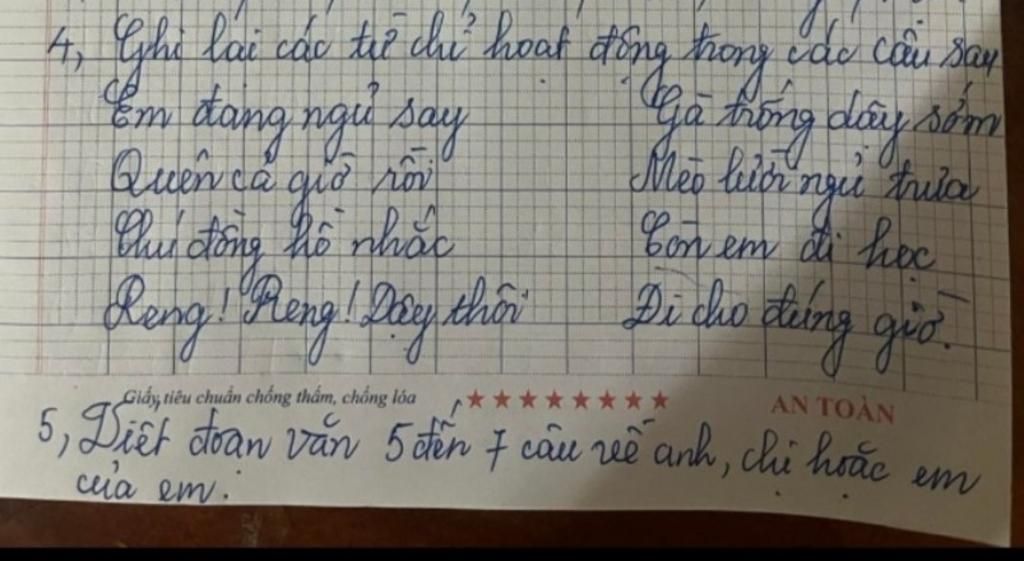 4, Ghi lại các từ chỉ hoạt động trong các câu sau
Em đang ngủ say
Quên cả giờ rồi
Chú đồng hồ nhắc
Reng! Reng! Dậy thôi
Gà trống dậy sớm
Mèo lười ngủ trưa
Còn em đi học
Đi cho đúng giờ.
Giấy tiêu chuẩn chống thấm, chống lóa ★★★★★★★★ AN TOÀN
5, Viết đoạn văn 5 đến 7 câu về anh, chị hoặc em
của em.